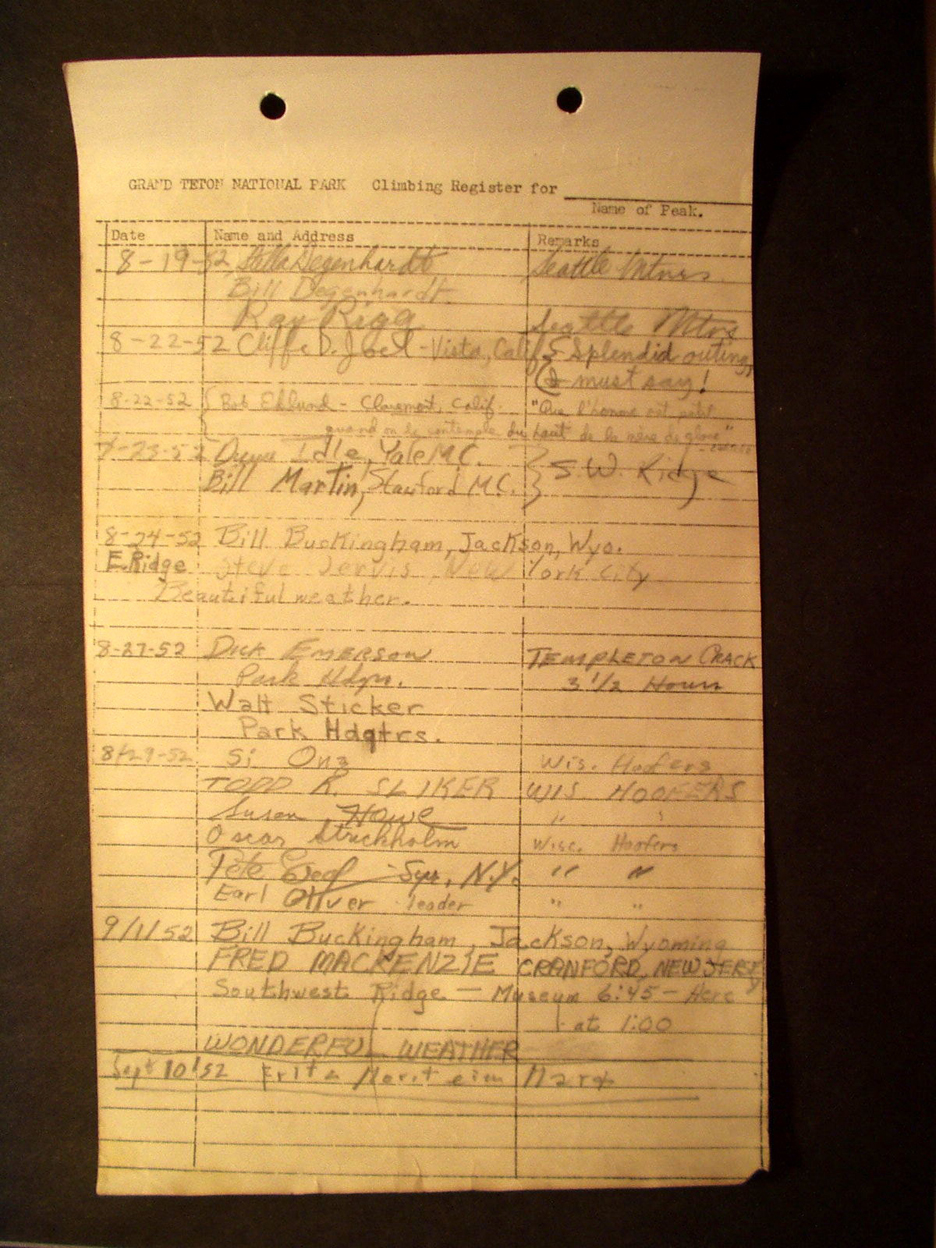 GRAND TETON NATIONAL PARK Climbing Register for
Name of Peak.
Date Name and Address Remarks
8-19-52 Stella Degenhardt Seattle Mtnrs
Bill Degenhardt
Ray Rigg Seattle Mtrs
8-22-52 Cliffe D. Joel - Vista, Calif { Splendid outing,
I must say!
8-22-52 { Bob Ehlund - Claremont, Calif. "Que l'homme est petit
quand on le contemple du haut de la mère de glace"
-23-52 Idle, Yale M.C. } S.W. Ridge
Bill Martin, Stanford M.C.
8-24-52 Bill Buckingham, Jackson, Wyo.
E.Ridge Steve Jervis, New York City
Beautiful weather.
8-27-52 Dick Emerson TEMPLETON CRACK
Park Hdqrs. 3 1/2 Hours
Walt Sticker
Park Hdqtrs.
8/29-52 Si Wis. Hoofers
TODD R. SLIKER WIS HOOFERS
Susan Howe " "
Oscar Wisc. Hoofers
Pete Syr, N.Y. " "
Earl Oliver leader " "
9/1/52 Bill Buckingham, Jackson, Wyoming
FRED MACKENZIE CRANFORD, NEW JERSEY
Southwest Ridge — Museum 6:45 - Here
at 1:00
WONDERFUL WEATHER
Sept 10 '52 Fritz